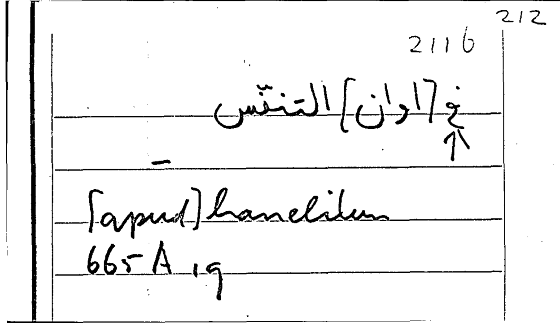 212
2116
في [اوان] التنفّس
[apud] hanelitum
665 A, 9